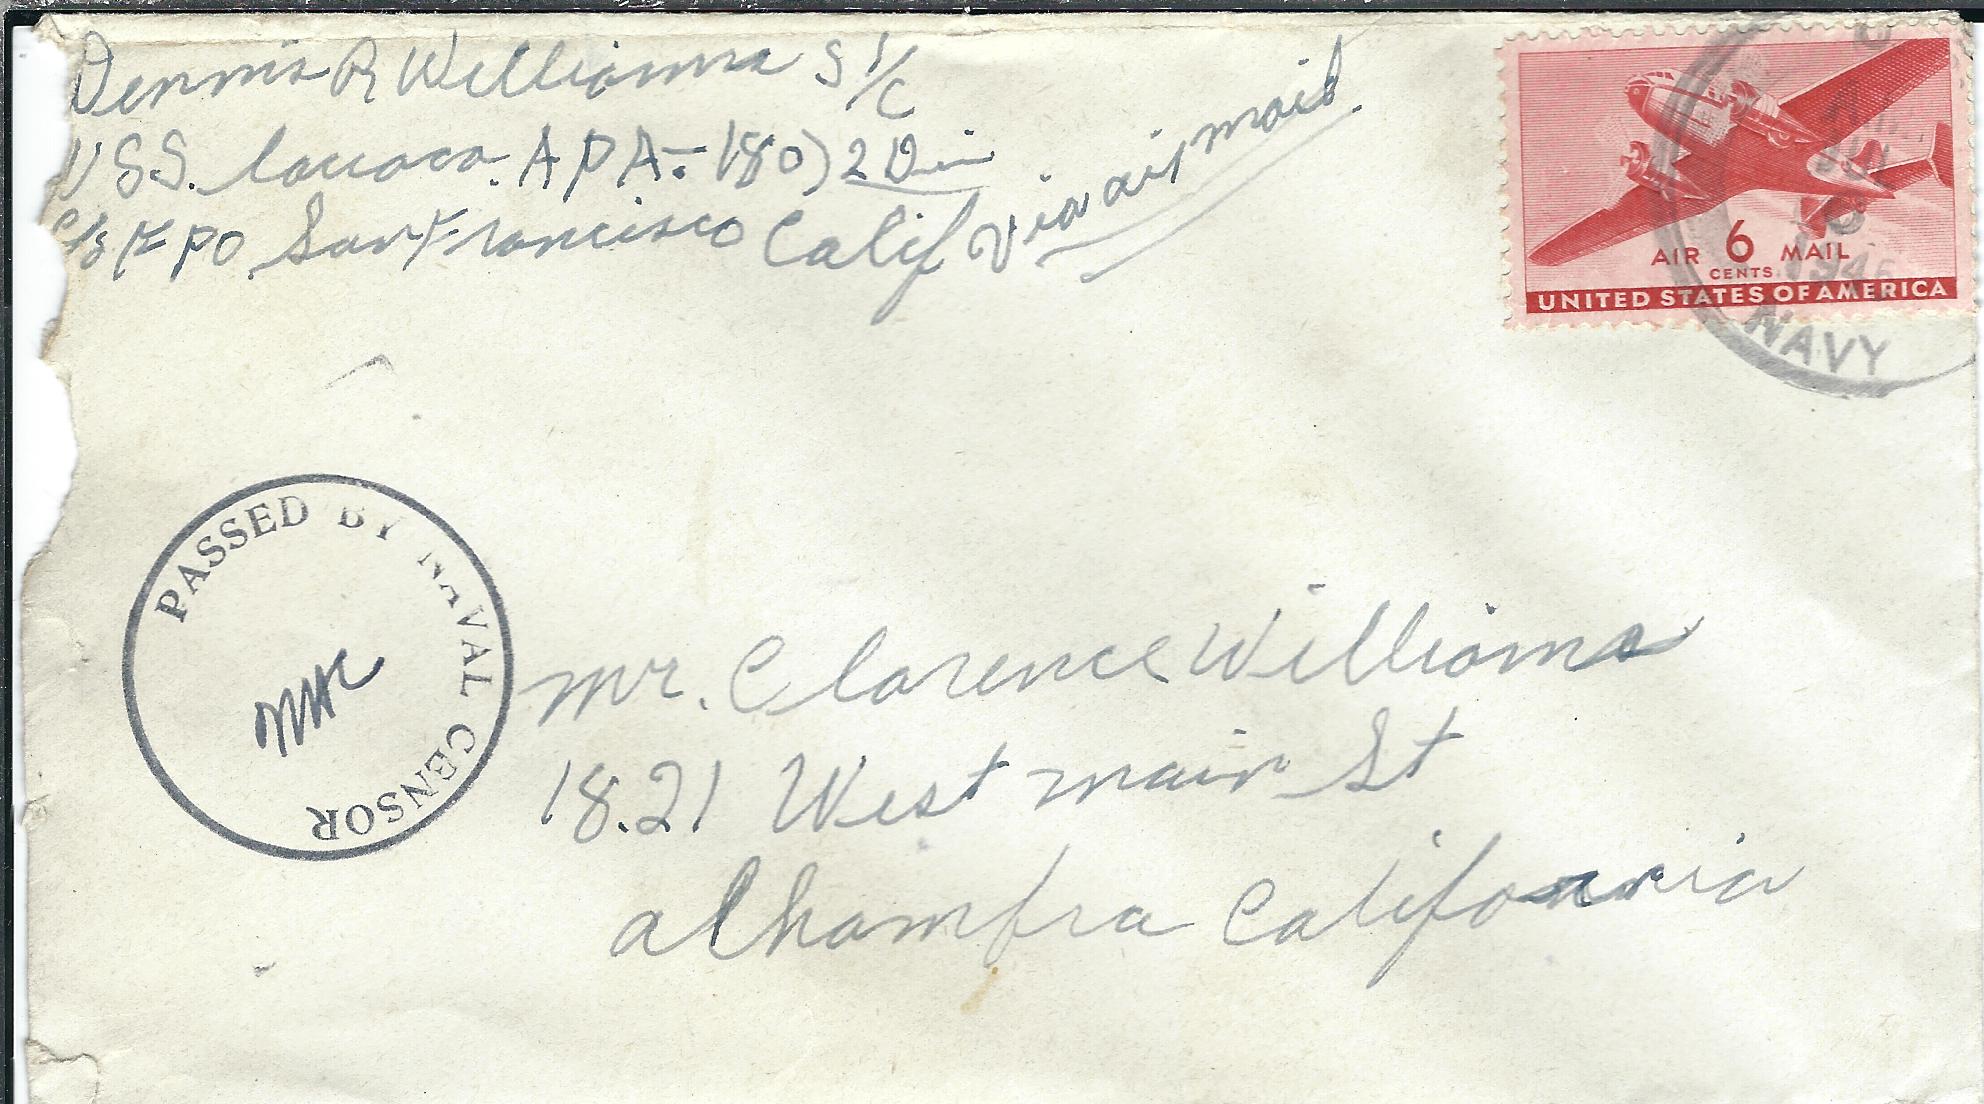 Dennis R Williams S 1/C
USS. Lavaca. APA-180) 2 Div
c/o FPO San Francisco Calif
Via air mail.
AIR 6 MAIL
CENTS
UNITED STATES OF AMERICA
JUL
1945
NAVY
PASSED BY NAVAL CENSOR
Mr. Clarence Williams
1821 West main St
alhambra California